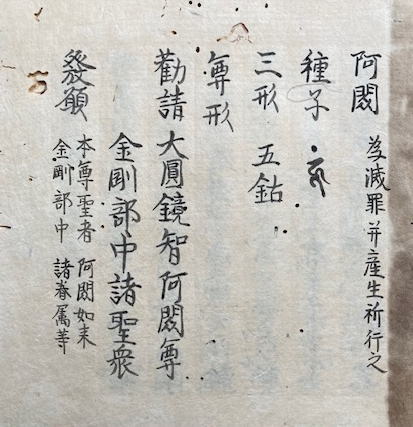 阿閦 為滅罪并産生祈行之
種子 𑖮𑖳𑖽
三形 五鈷
尊形
勸請 大圓鏡智阿閦尊
金剛部中諸聖衆
發願 本尊聖者 阿閦如来
金剛部中 諸眷属等